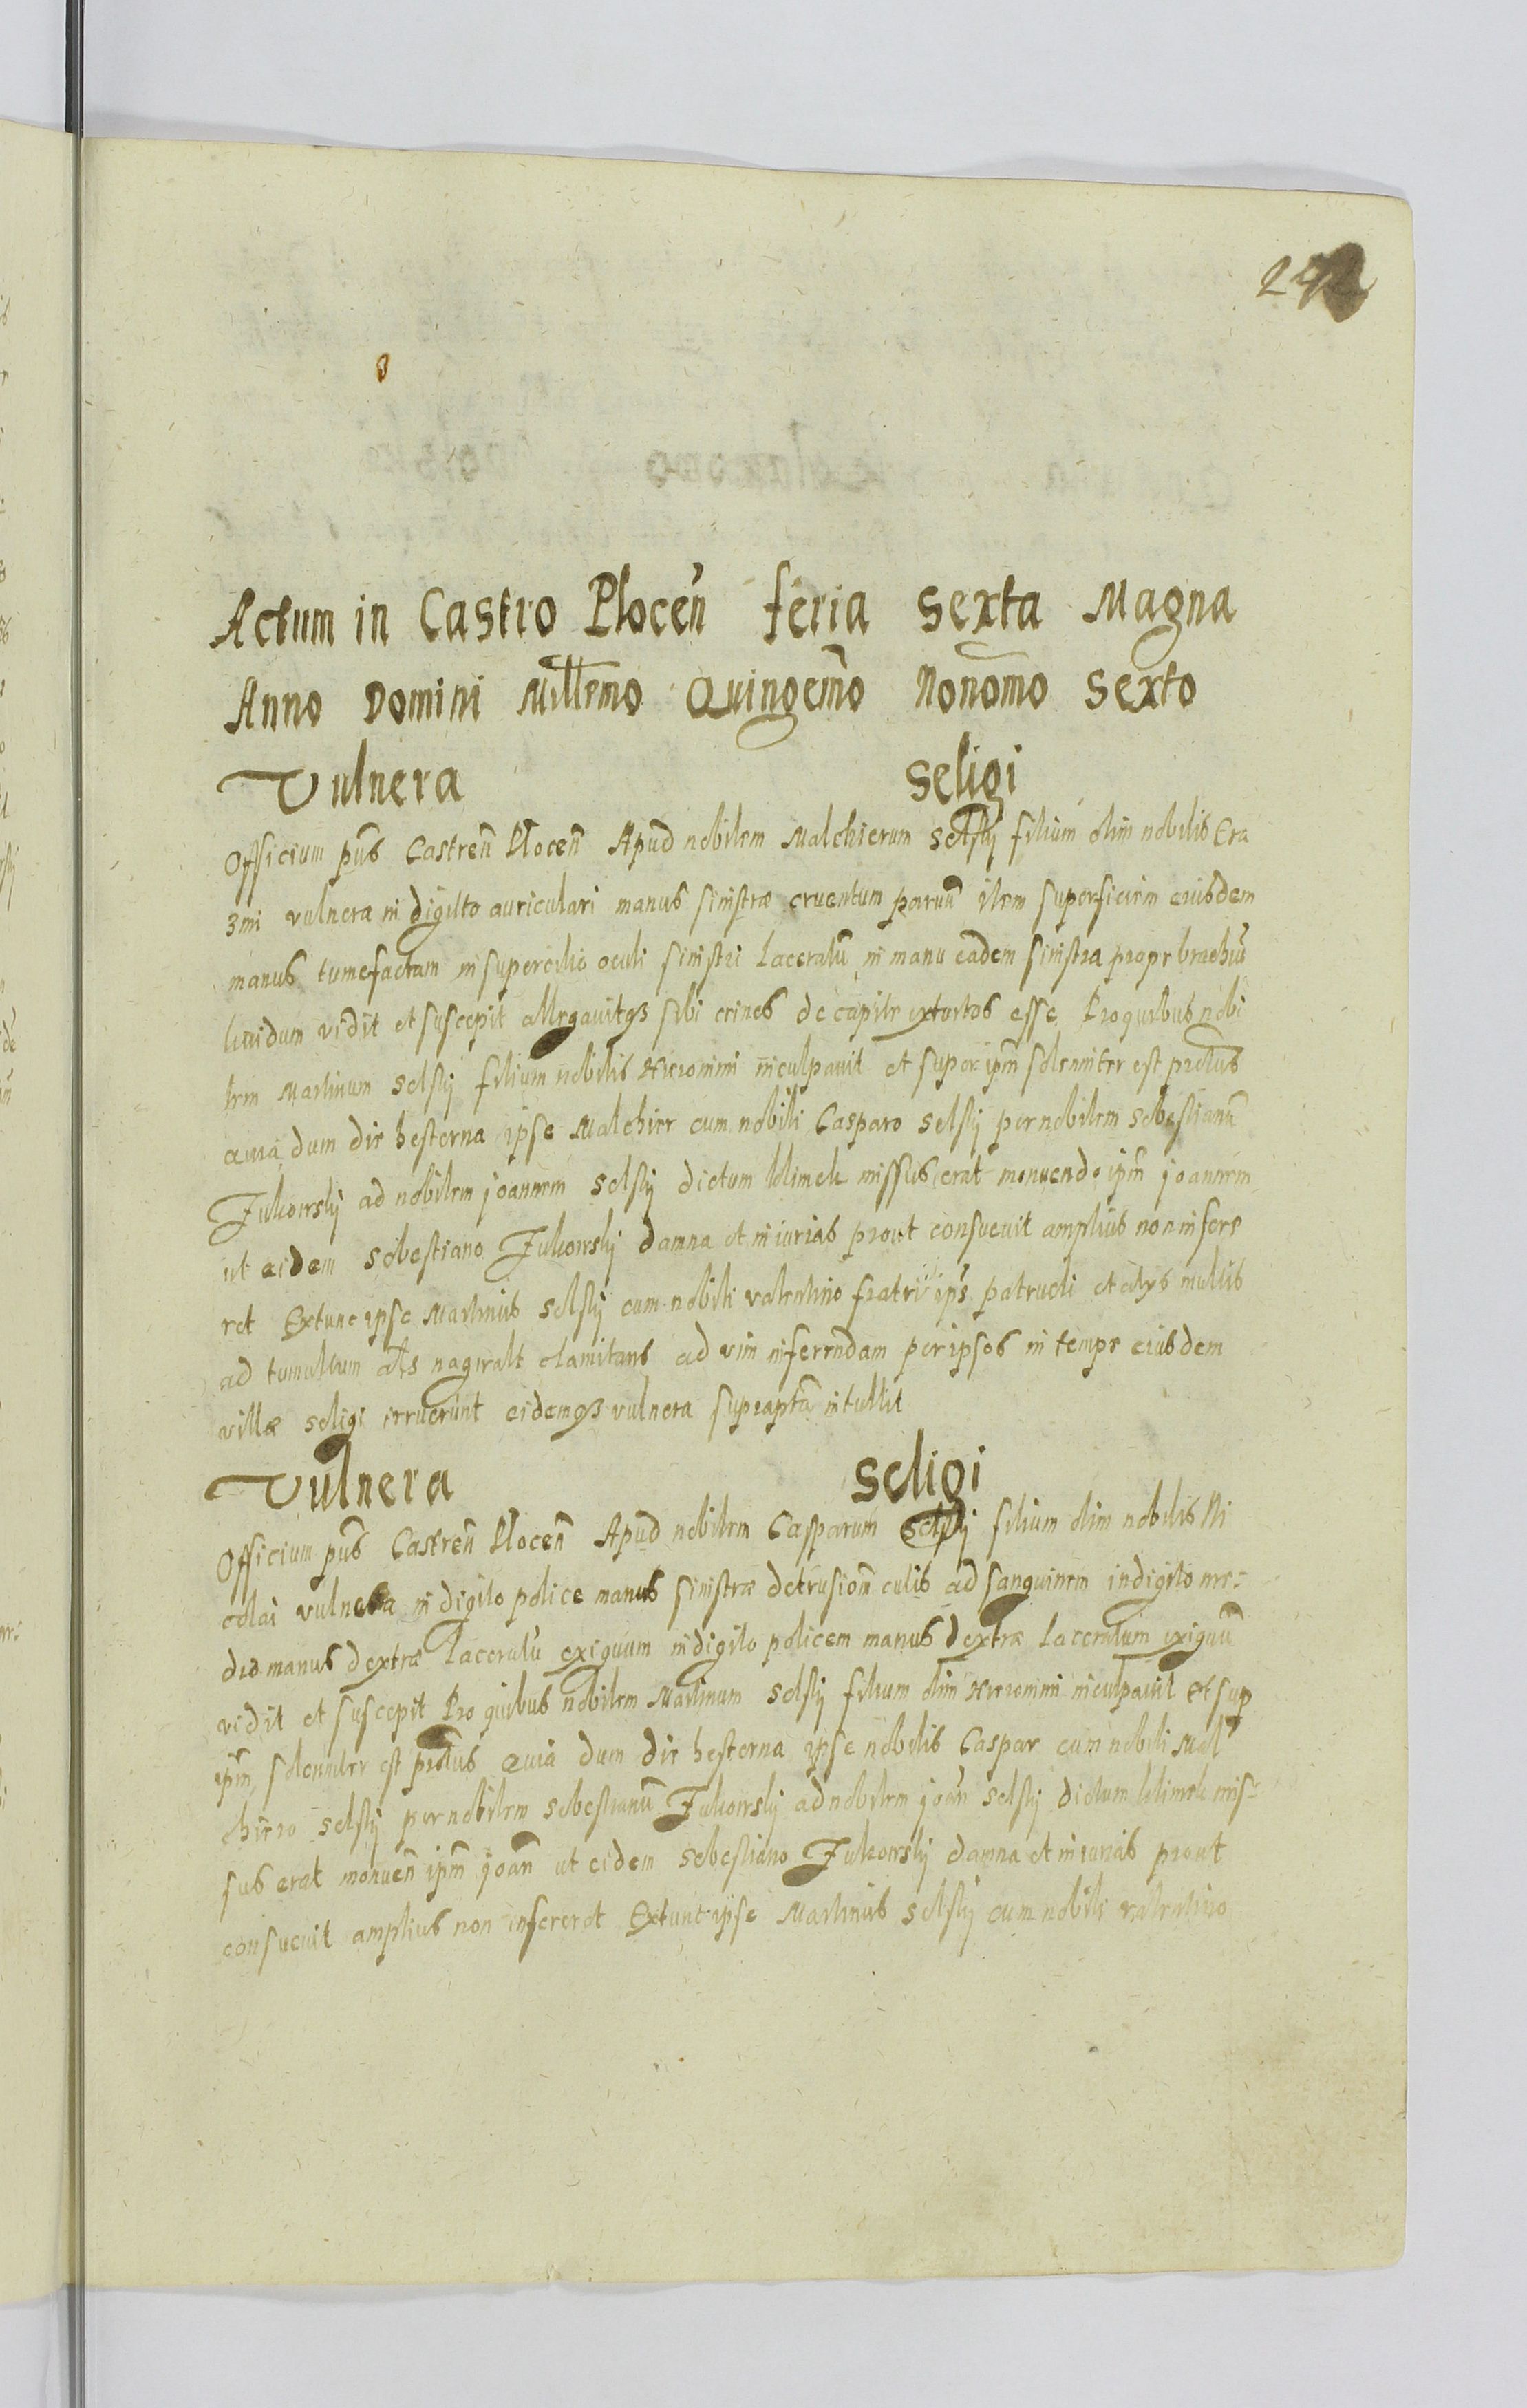 242
Actum in Castro Plocen̄ feria sexta Magna
Anno Domini Millemo Quingemo Nonomo Sexto
Vulnera Seligi
Officium pn̄s Castren̄ Plocen̄ Apud nobilem Malchierum Selsky filium olim nobilis Era
zmi vulnera in digito auriculari manus sinistræ cruentum paruū item superficiem eiusdem
manus tumefactam in supercilio oculi sinistri laceratū in manu eadem sinistra prope brachiū
liuidum vidit et suscepit allegauitqȝ sibi crines de capite extortos esse Pro quibus nobi
lem Martinum Selsky filium nobilis Hieronimi inculpauit et super ipm̄ solenniter est prōtus
quia dum die hesterna ipse Malchier cum nobili Casparo Selsky per nobilem Sebestianū
Zukowsky ad nobilem Joannem Selsky dictum klimek missus erat monuendo ipm̄ Joannem
ut eidem Sebestiano Zukowsky damna et iniurias prout consueuit amplius non infere
ret Extunc ipse Martinus Selsky cum nobili valentino fratri ips̄ patrueli et alys multis
ad tumultum als̄ nagwalt clamitans ad vim inferendam per ipsos in tempe eiusdem
villæ Seligi irruerunt eidemqȝ vulnera suprapta intullit
Vulnera Seligi
Officium pn̄s Castren̄ Plocen̄ Apud nobilem Casparum Selsky filium olim nobilis Ni
colai vulnera in digito police manus sinistræ detrusiom̄ cutis ad sanguinem in digito me-
dio manus dextræ laceratū exiguum in digito policem manus dextræ laceratum exiguū
vidit et suscepit Pro quibus nobilem Martinum Selsky filium olim Hieronimi inculpauit et sup
ipm̄ solenniter est prōtus quia dum die hesterna ipse nobilis Caspar cum nobili Mal
chiero Selsky per nobilem Sebestianū Zukowsky ad nobilem Joan̄ Selsky dictum klimek mis-
sus erat monuen̄ ipm̄ Joan̄ ut eidem Sebestiano Zukowsky damna et iniurias prout
consueuit amplius non infereret Extunc ipse Martinus Selsky cum nobili valentino